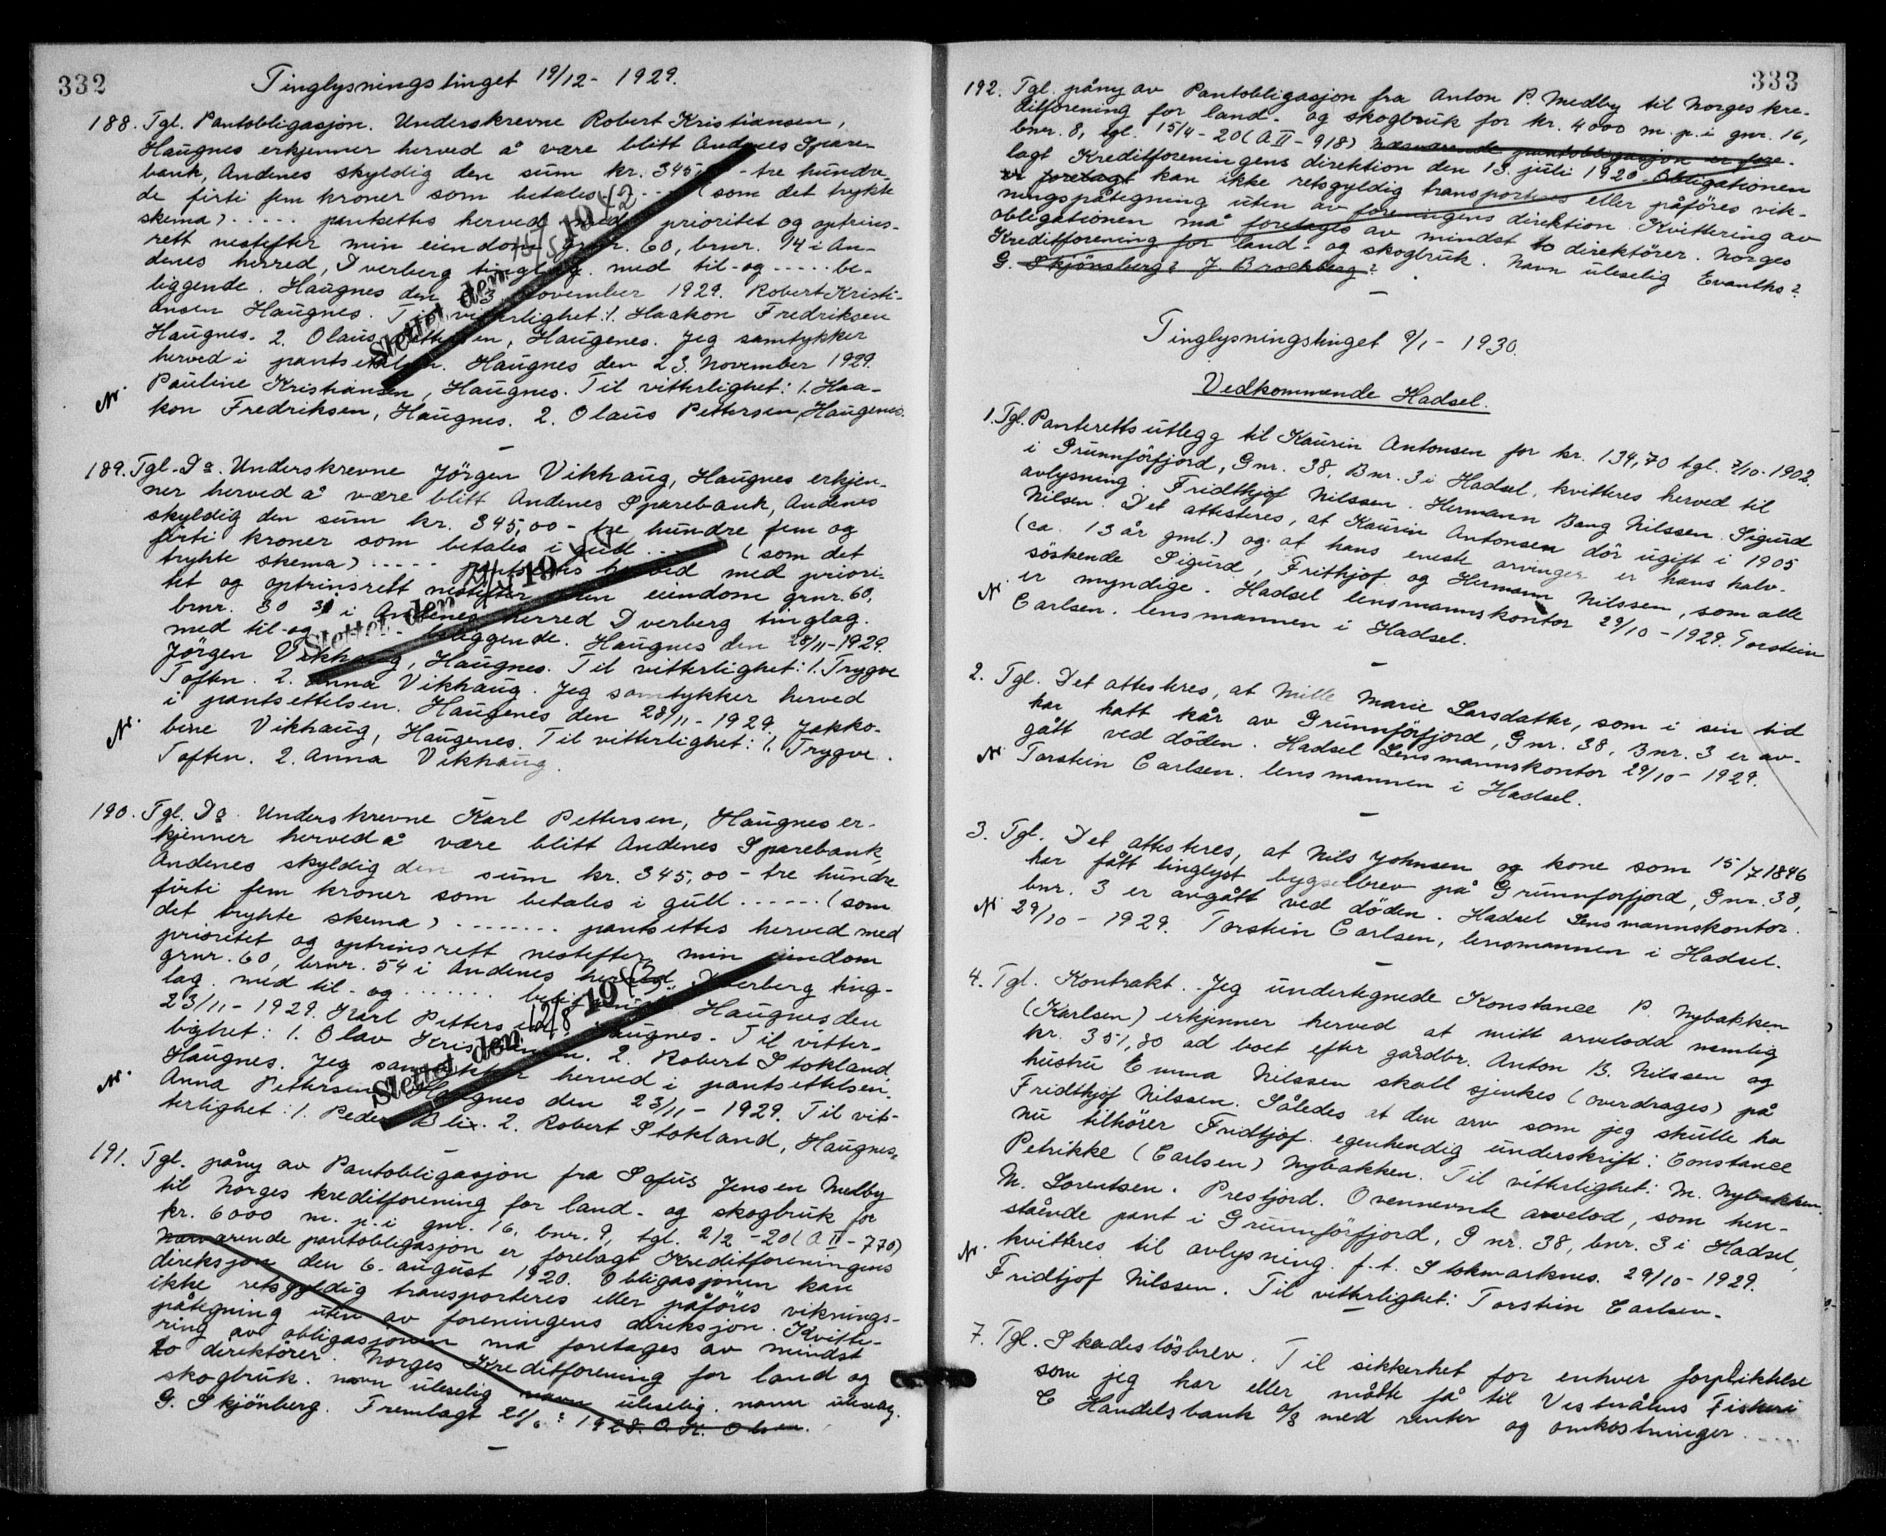 332
Tinglysningstinget 19/12 - 1929.
188. Tgl. Pantobligasjon. Underskrevne Robert Kristiansen,
Haugnes erkjenner herved å være blitt Andenes Spare-
bank, Andenes skyldig den sum kr. 345, - tre hundre-
de firti fem kroner som betales ..... (som det trykte
skema) ..... pantsettes herved med prioritet og optrins-
rett nestefter min eiendom grnr. 60, brnr. 14 i An-
denes herred, Dverberg tinglag. med til- og ..... be-
liggende. Haugnes den 23 november 1929. Robert Kristi-
ansen Haugnes. Til vitterlighet: 1. Haakon Fredriksen
Haugnes. 2. Olaus Pettersen, Haugenes. Jeg samtykker
herved i pantsettelsen. Haugnes den 23. November 1929.
Pauline Kristiansen, Haugnes. Til vitterlighet: 1. Haa-
kon Fredriksen, Haugnes. 2. Olaus Pettersen, Haugenes.
Slettet den 19
189. Tgl. Do. Underskrevne Jörgen Vikhaug, Haugnes erkjen-
ner herved å være blitt Andenes Sparebank, Andenes
skyldig den sum kr. 345,00 - tre hundre fem og
firti kroner som betales i gull ..... (som det
trykte skema) ..... pantsettes herved med priori-
tet og optrinsrett nestefter min eiendom grnr. 60,
brnr. 30 i Andenes herred Dverberg tinglag.
med til- og ..... beliggende. Haugnes den 28/11-1929.
Jörgen Vikhaug, Haugnes. Til vitterlighet: 1. Trygve
Toften. 2. Anna Vikhaug. Jeg samtykker herved
i pantsettelsen. Haugenes den 28/11 - 1929. Jakko-
bine Vikhaug, Haugenes. Til vitterlighet: 1. Trygve
Toften. 2. Anna Vikhaug.
Slettet den 19
190. Tgl. Do. Underskrevne Karl Pettersen, Haugnes er-
kjenner herved å være blitt Andenes Sparebank,
Andenes skyldig den sum kr. 345,00 - tre hundre
firti fem kroner som betales i gull ...... (som
det trykte skema) ........ pantsettes herved med
prioritet og optrinsrett nestefter min eiendom
grnr. 60, brnr. 54 i Andenes herred Dverberg ting-
lag. med til- og ....... beliggende. Haugnes den
23/11 - 1929. Karl Pettersen, Haugnes. Til vitter-
lighet: 1. Olav Kristiansen. 2. Robert Stokland
Haugnes. Jeg samtykker herved i pantsettelsen.
Anna Pettersen Haugnes den 23/11 - 1929. Til vit-
terlighet: 1. Peder Blix. 2. Robert Stokland, Haugnes.
Slettet den 12/8 19
191. Tgl. påny av Pantobligasjon fra Sofus Jensen Melby
til Norges kreditforening for land- og skogbruk for
kr. 6000 m. p. i gnr. 16, bnr. 9, tgl. 2/2 - 20 (A II - 770)
Nærværende pantobligasjon er forelagt Kreditforeningens
direksjon den 6. august 1920. Obligasjonen kan
ikke retsgyldig transporteres eller påføres viknings-
påtegning uten av foreningens direksjon. Kvitte-
ring av obligasjonen må foretages av mindst
to direktører. Norges Kreditforening for land og
skogbruk. navn uleselig navn uleselig. navn uleselig.
G. Skjönberg. Fremlagt 28/6? 1928. O. K. Olsen.
333
192. Tgl. påny av Pantobligasjon fra Anton P. Medby til Norges kre-
ditforening for land- og skogbruk for kr. 4000 m. p. i gnr. 16,
bnr. 8, tgl. 15/4 - 20 (A II - 918) Nærværende pantobligasjon er fore-
lagt Kreditforeningens direktion den 13. juli 1920. Obligationen
er forelagt kan ikke retsgyldig transporteres eller påføres vik-
ningspåtegning uten av foreningens direktion. Kvittering av
obligationen må foretages av mindst to direktører. Norges
Kreditforening for land- og skogbruk. Navn uleselig Evanths?
G. Skjönsberg? J. Brochberg?
Tinglysningstinget 9/1 - 1930.
Vedkommende Hadsel.
1. Tgl. Panterettsutlegg til Kaurin Antonsen for kr. 134,70 tgl. 7/10 - 1902
i Grunnförfjord, Gnr. 38, Bnr. 3 i Hadsel, kvitteres herved til
avlysning. Fridthjof Nilssen. Hermann Bang Nilssen. Sigurd
Nilsen. Det attesteres, at Kaurin Antonsen dör ugift i 1905
(ca. 13 år gml.) og at hans eneste arvinger er hans halv-
söskende Sigurd, Frithjof og Hermann Nilssen, som alle
er myndige. Hadsel lensmannskontor 29/10 - 1929. Torstein
Carlsen. lensmannen i Hadsel.
2. Tgl. Det attesteres, at Mille Marie Larsdatter, som i sin tid
har hatt kår av Grunnförfjord, Gnr. 38, Bnr. 3 er av-
gått ved döden. Hadsel Lensmannskontor 29/10 - 1929.
Torstein Carlsen. lensmannen i Hadsel.
3. Tgl. Det attesteres, at Nils Johnsen og kone som 15/7 1846
har fått tinglyst bygselbrev på Grunnforfjord, Gnr. 38,
bnr. 3 er avgått ved döden. Hadsel Lensmannskontor.
29/10 - 1929. Torstein Carlsen, lensmannen i Hadsel.
4. Tgl. Kontrakt. Jeg undertegnede Konstance P. Nybakken
(Karlsen) erkjenner herved at mitt arvelodd nemlig
kr. 351,80 ad boet efter gårdbr. Anton B. Nilssen og
hustru Emma Nilssen skall sjenkes (overdrages) på
Fridthjof Nilssen. Således at den arv som jeg skulle ha
nu tilhörer Fridtjof. egenhendig underskrift: Constance
Petrikke (Carlsen) Nybakken. Til vitterlighet: M. Nybakken.
M. Lorentsen. Presfjord. Ovennevnte arvelod, som hen-
stående pant i Grunnförfjord, Gnr. 38, bnr. 3 i Hadsel,
kvitteres til avlysning. f. t. Stokmarknes. 29/10 - 1929.
Fridtjof Nilssen. Til vitterlighet: Torstein Carlsen.
7. Tgl. Skadeslösbrev. Til sikkerhet for enhver forpliktelse
som jeg har eller måtte få til Vesterålens Fiskeri
& Handelsbank A/S med renter og omkostninger .....